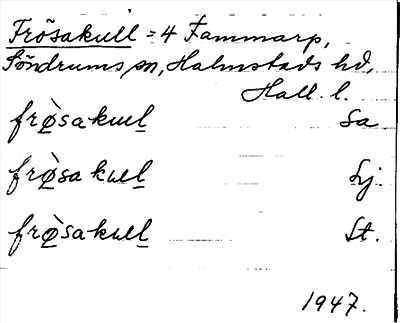 Frösakull = 4 Fammarp,
Söndrums sn, Halmstads hd,
Hall. l.
frø̀sakul̲l̲ Sa
frø̀sa kul̲l̲ Lj.
frø̀sakul̲l̲ St.
1947.